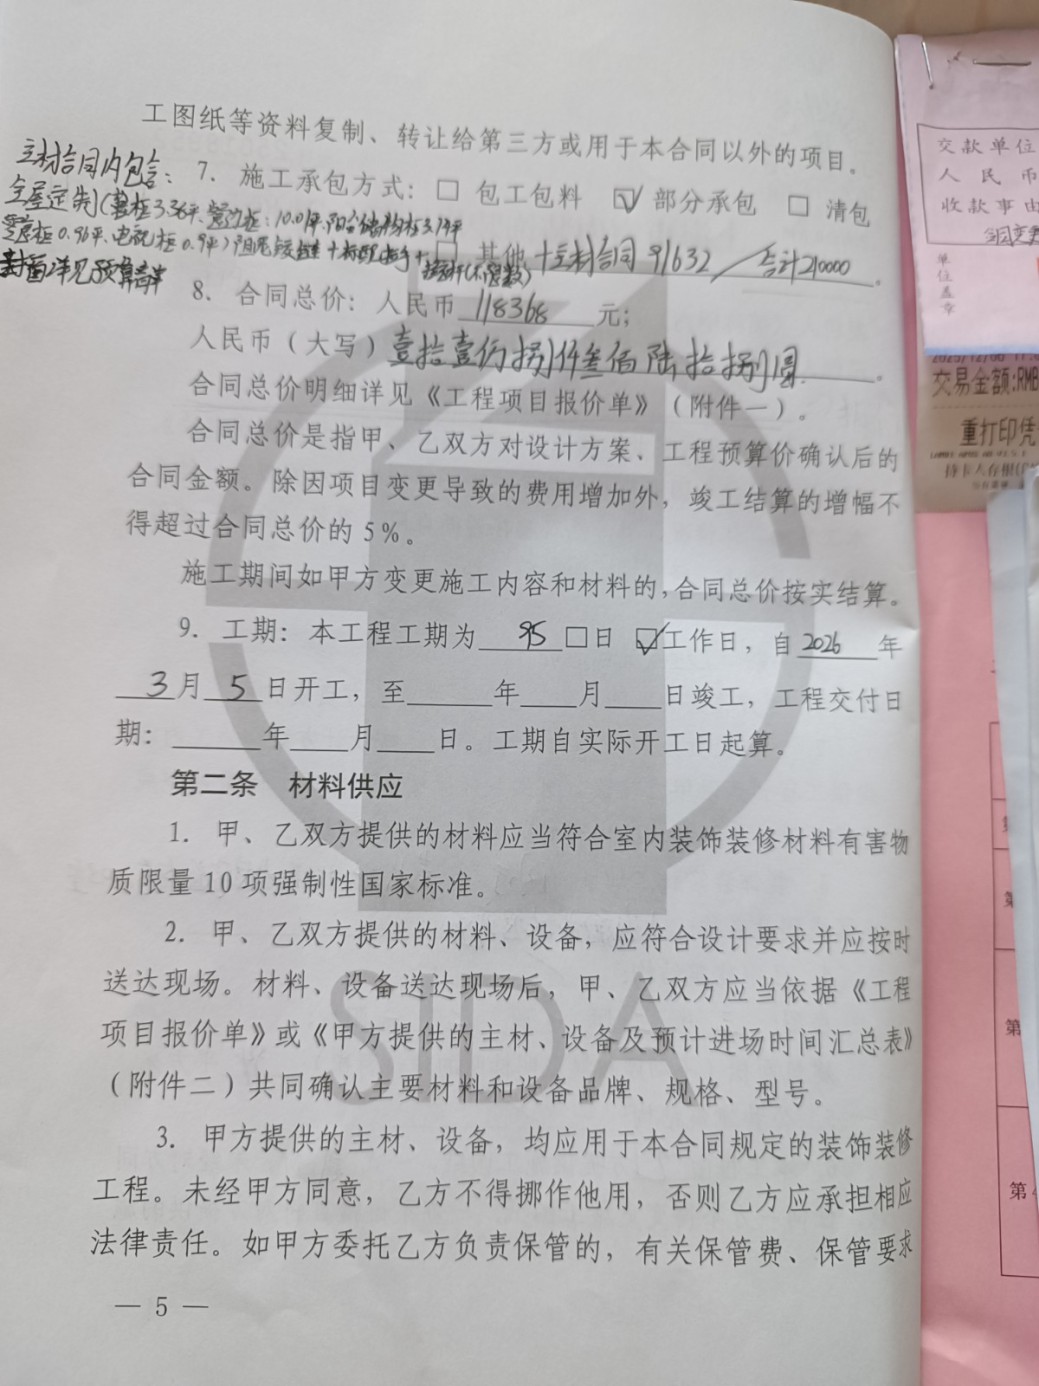 工图纸等资料复制、转让给第三方或用于本合同以外的项目。
主材合同内包含：
7. 施工承包方式：□ 包工包料 ☑ 部分承包 □ 清包
全屋定制
3.36平
10.01平
3.19平
0.96平、电视柜0.9平
□ 其他 +主材合同91632 合计210000。
封面详见预算清单
8. 合同总价：人民币 118368 元；
人民币（大写）壹拾壹仟捌仟叁佰陆拾捌圆。
合同总价明细详见《工程项目报价单》（附件一）。
合同总价是指甲、乙双方对设计方案、工程预算价确认后的
合同金额。除因项目变更导致的费用增加外，竣工结算的增幅不
得超过合同总价的 5%。
施工期间如甲方变更施工内容和材料的，合同总价按实结算。
9. 工期：本工程工期为 95 □日 ☑工作日，自 2026 年
3 月 5 日开工，至______年____月____日竣工，工程交付日
期：______年____月____日。工期自实际开工日起算。
第二条 材料供应
1. 甲、乙双方提供的材料应当符合室内装饰装修材料有害物
质限量 10 项强制性国家标准。
2. 甲、乙双方提供的材料、设备，应符合设计要求并应按时
送达现场。材料、设备送达现场后，甲、乙双方应当依据《工程
项目报价单》或《甲方提供的主材、设备及预计进场时间汇总表》
（附件二）共同确认主要材料和设备品牌、规格、型号。
3. 甲方提供的主材、设备，均应用于本合同规定的装饰装修
工程。未经甲方同意，乙方不得挪作他用，否则乙方应承担相应
法律责任。如甲方委托乙方负责保管的，有关保管费、保管要求
— 5 —
SIDA
交款单位
人民币
收款事由
单位盖章
交易金额:RMB
重打印凭
持卡人存根
第
第